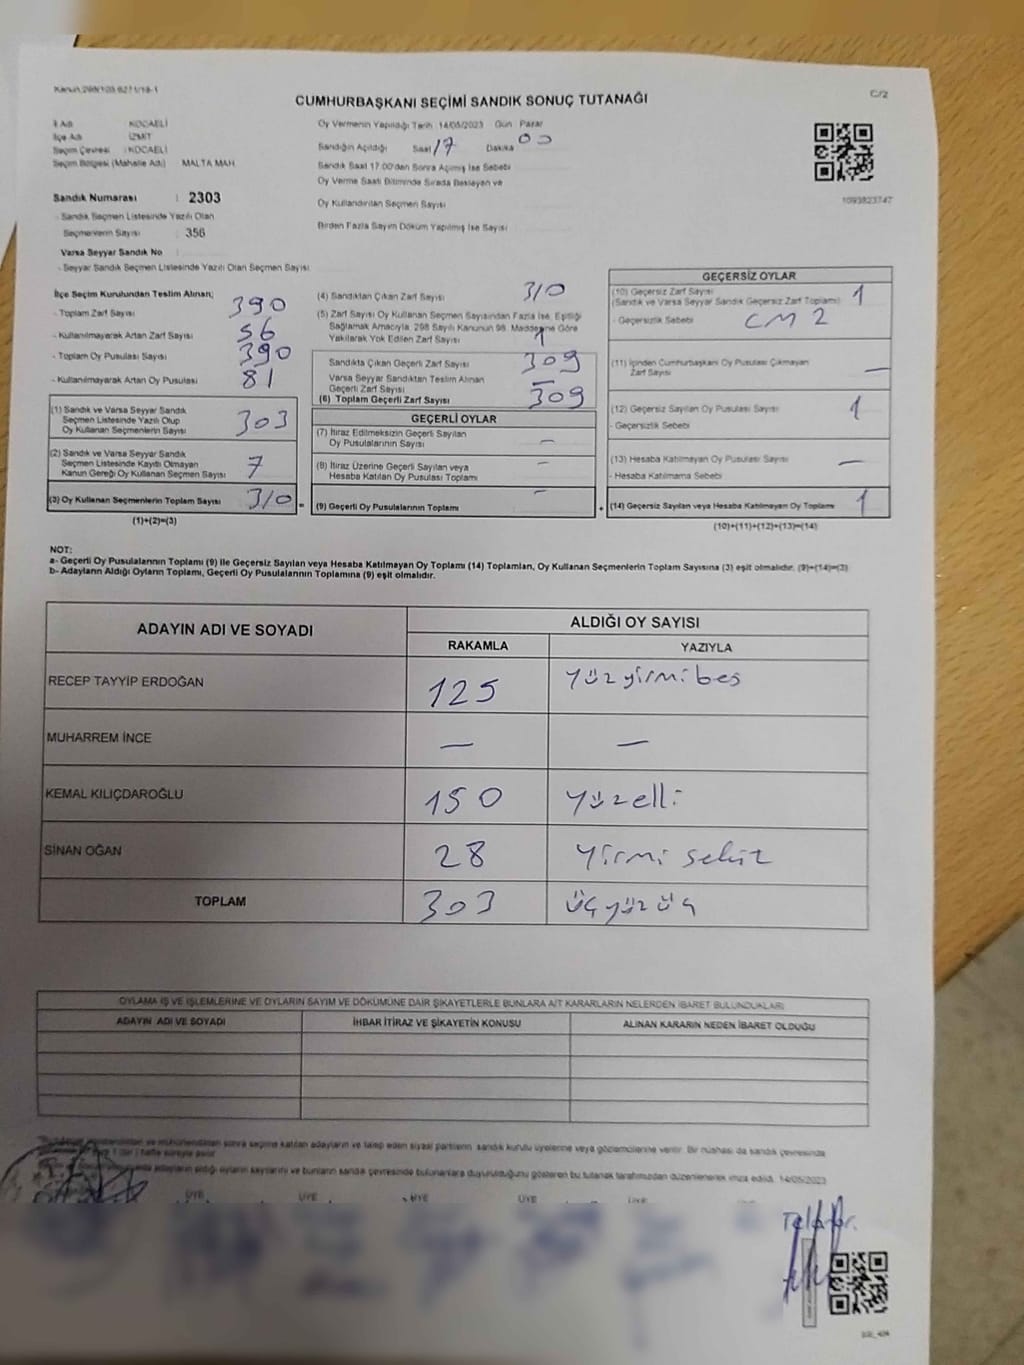 Kanun:298/105.6271/18-1
CUMHURBAŞKANI SEÇİMİ SANDIK SONUÇ TUTANAĞI
C/2
İl Adı KOCAELİ
İlçe Adı İZMİT
Seçim Çevresi : KOCAELİ
Seçim Bölgesi (Mahalle Adı) MALTA MAH.
Oy Vermenin Yapıldığı Tarih 14/05/2023 Gün Pazar
Sandığın Açıldığı Saat 17 Dakika 00
Sandık Saat 17:00'den Sonra Açılmış İse Sebebi
Oy Verme Saati Bitiminde Sırada Bekleyen ve
Oy Kullandırılan Seçmen Sayısı
Birden Fazla Sayım Döküm Yapılmış İse Sayısı
1093823747
Sandık Numarası : 2303
- Sandık Seçmen Listesinde Yazılı Olan
Seçmenlerin Sayısı : 356
Varsa Seyyar Sandık No
- Seyyar Sandık Seçmen Listesinde Yazılı Olan Seçmen Sayısı
İlçe Seçim Kurulundan Teslim Alınan;
- Toplam Zarf Sayısı 390
- Kullanılmayarak Artan Zarf Sayısı 56
- Toplam Oy Pusulası Sayısı 390
- Kullanılmayarak Artan Oy Pusulası 81
(1) Sandık ve Varsa Seyyar Sandık
Seçmen Listesinde Yazılı Olup
Oy Kullanan Seçmenlerin Sayısı 303
(2) Sandık ve Varsa Seyyar Sandık
Seçmen Listesinde Kayıtlı Olmayan
Kanun Gereği Oy Kullanan Seçmen Sayısı 7
(3) Oy Kullanan Seçmenlerin Toplam Sayısı 310
(1)+(2)=(3)
(4) Sandıktan Çıkan Zarf Sayısı 310
(5) Zarf Sayısı Oy Kullanan Seçmen Sayısından Fazla İse, Eşitliği
Sağlamak Amacıyla, 298 Sayılı Kanunun 98. Maddesine Göre
Yakılarak Yok Edilen Zarf Sayısı 1
Sandıkta Çıkan Geçerli Zarf Sayısı 309
Varsa Seyyar Sandıktan Teslim Alınan
Geçerli Zarf Sayısı —
(6) Toplam Geçerli Zarf Sayısı 309
GEÇERLİ OYLAR
(7) İtiraz Edilmeksizin Geçerli Sayılan
Oy Pusulalarının Sayısı —
(8) İtiraz Üzerine Geçerli Sayılan veya
Hesaba Katılan Oy Pusulası Toplamı —
= (9) Geçerli Oy Pusulalarının Toplamı — +
GEÇERSİZ OYLAR
(10) Geçersiz Zarf Sayısı 1
(Sandık ve Varsa Seyyar Sandık Geçersiz Zarf Toplamı)
- Geçersizlik Sebebi CM2
(11) İçinden Cumhurbaşkanı Oy Pusulası Çıkmayan
Zarf Sayısı —
(12) Geçersiz Sayılan Oy Pusulası Sayısı 1
- Geçersizlik Sebebi
(13) Hesaba Katılmayan Oy Pusulası Sayısı —
- Hesaba Katılmama Sebebi
(14) Geçersiz Sayılan veya Hesaba Katılmayan Oy Toplamı 1
(10)+(11)+(12)+(13)=(14)
NOT:
a- Geçerli Oy Pusulalarının Toplamı (9) ile Geçersiz Sayılan veya Hesaba Katılmayan Oy Toplamı (14) Toplamları, Oy Kullanan Seçmenlerin Toplam Sayısına (3) eşit olmalıdır. (9)+(14)=(3)
b- Adayların Aldığı Oyların Toplamı, Geçerli Oy Pusulalarının Toplamına (9) eşit olmalıdır.
ADAYIN ADI VE SOYADI ALDIĞI OY SAYISI
RAKAMLA YAZIYLA
RECEP TAYYİP ERDOĞAN 125 yüzyirmibeş
MUHARREM İNCE — —
KEMAL KILIÇDAROĞLU 150 yüzelli
SİNAN OĞAN 28 yirmi sekiz
TOPLAM 303 üçyüzüç
OYLAMA İŞ VE İŞLEMLERİNE VE OYLARIN SAYIM VE DÖKÜMÜNE DAİR ŞİKAYETLERLE BUNLARA AİT KARARLARIN NELERDEN İBARET BULUNDUKLARI
ADAYIN ADI VE SOYADI İHBAR İTİRAZ VE ŞİKAYETİN KONUSU ALINAN KARARIN NEDEN İBARET OLDUĞU
sonra seçime katılan adayların ve talep eden siyasi partilerin sandık kurulu üyelerine veya gözlemcilerine verilir. Bir nüshası da sandık çevresinde
1 (bir) hafta süreyle asılır
adayların aldığı oyların sayılarını ve bunların sandık çevresinde bulunanlara duyurulduğunu gösteren bu tutanak tarafımızdan düzenlenerek imza edildi. 14/05/2023
ÜYE ÜYE ÜYE ÜYE ÜYE